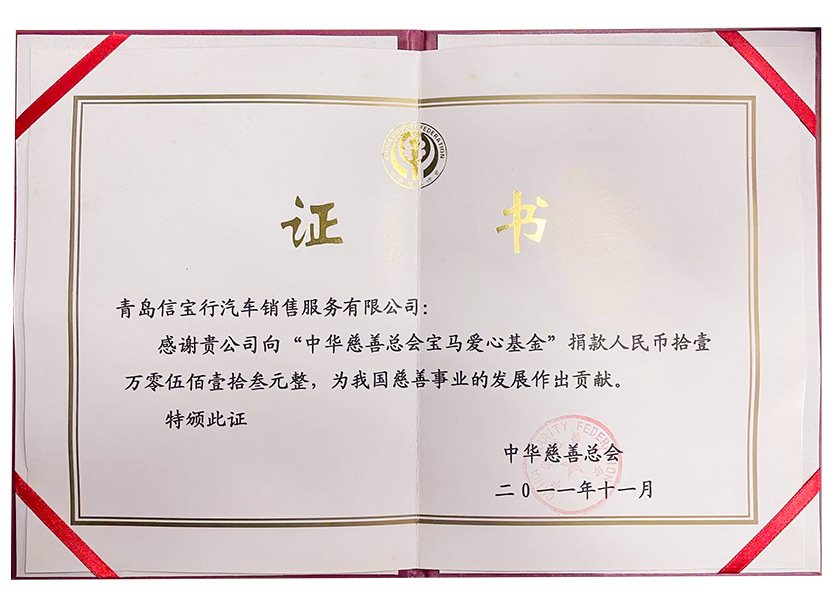 证 书
青岛信宝行汽车销售服务有限公司:
感谢贵公司向“中华慈善总会宝马爱心基金”捐款人民币拾壹
万零伍佰壹拾叁元整,为我国慈善事业的发展作出贡献。
特颁此证
中华慈善总会
二0一一年十一月